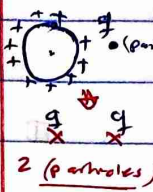 + + + + + + + + + + + +
q
q q
× ×
2 (particles)